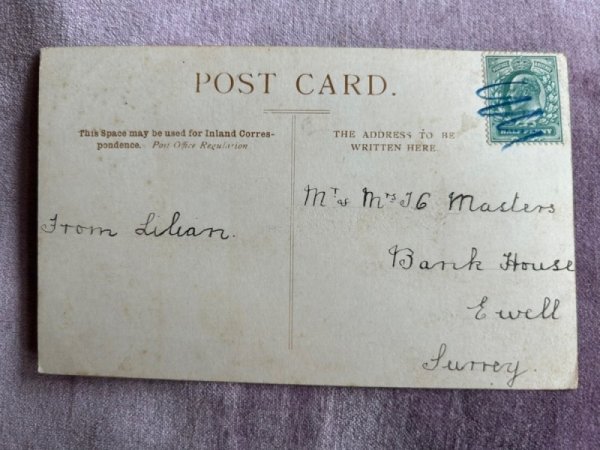 POST CARD.
This Space may be used for Inland Corres-
pondence. Post Office Regulation
THE ADDRESS TO BE
WRITTEN HERE.
HALF PENNY
From Lilian.
Mr & Mrs J G Masters
Bank House
Ewell
Surrey.